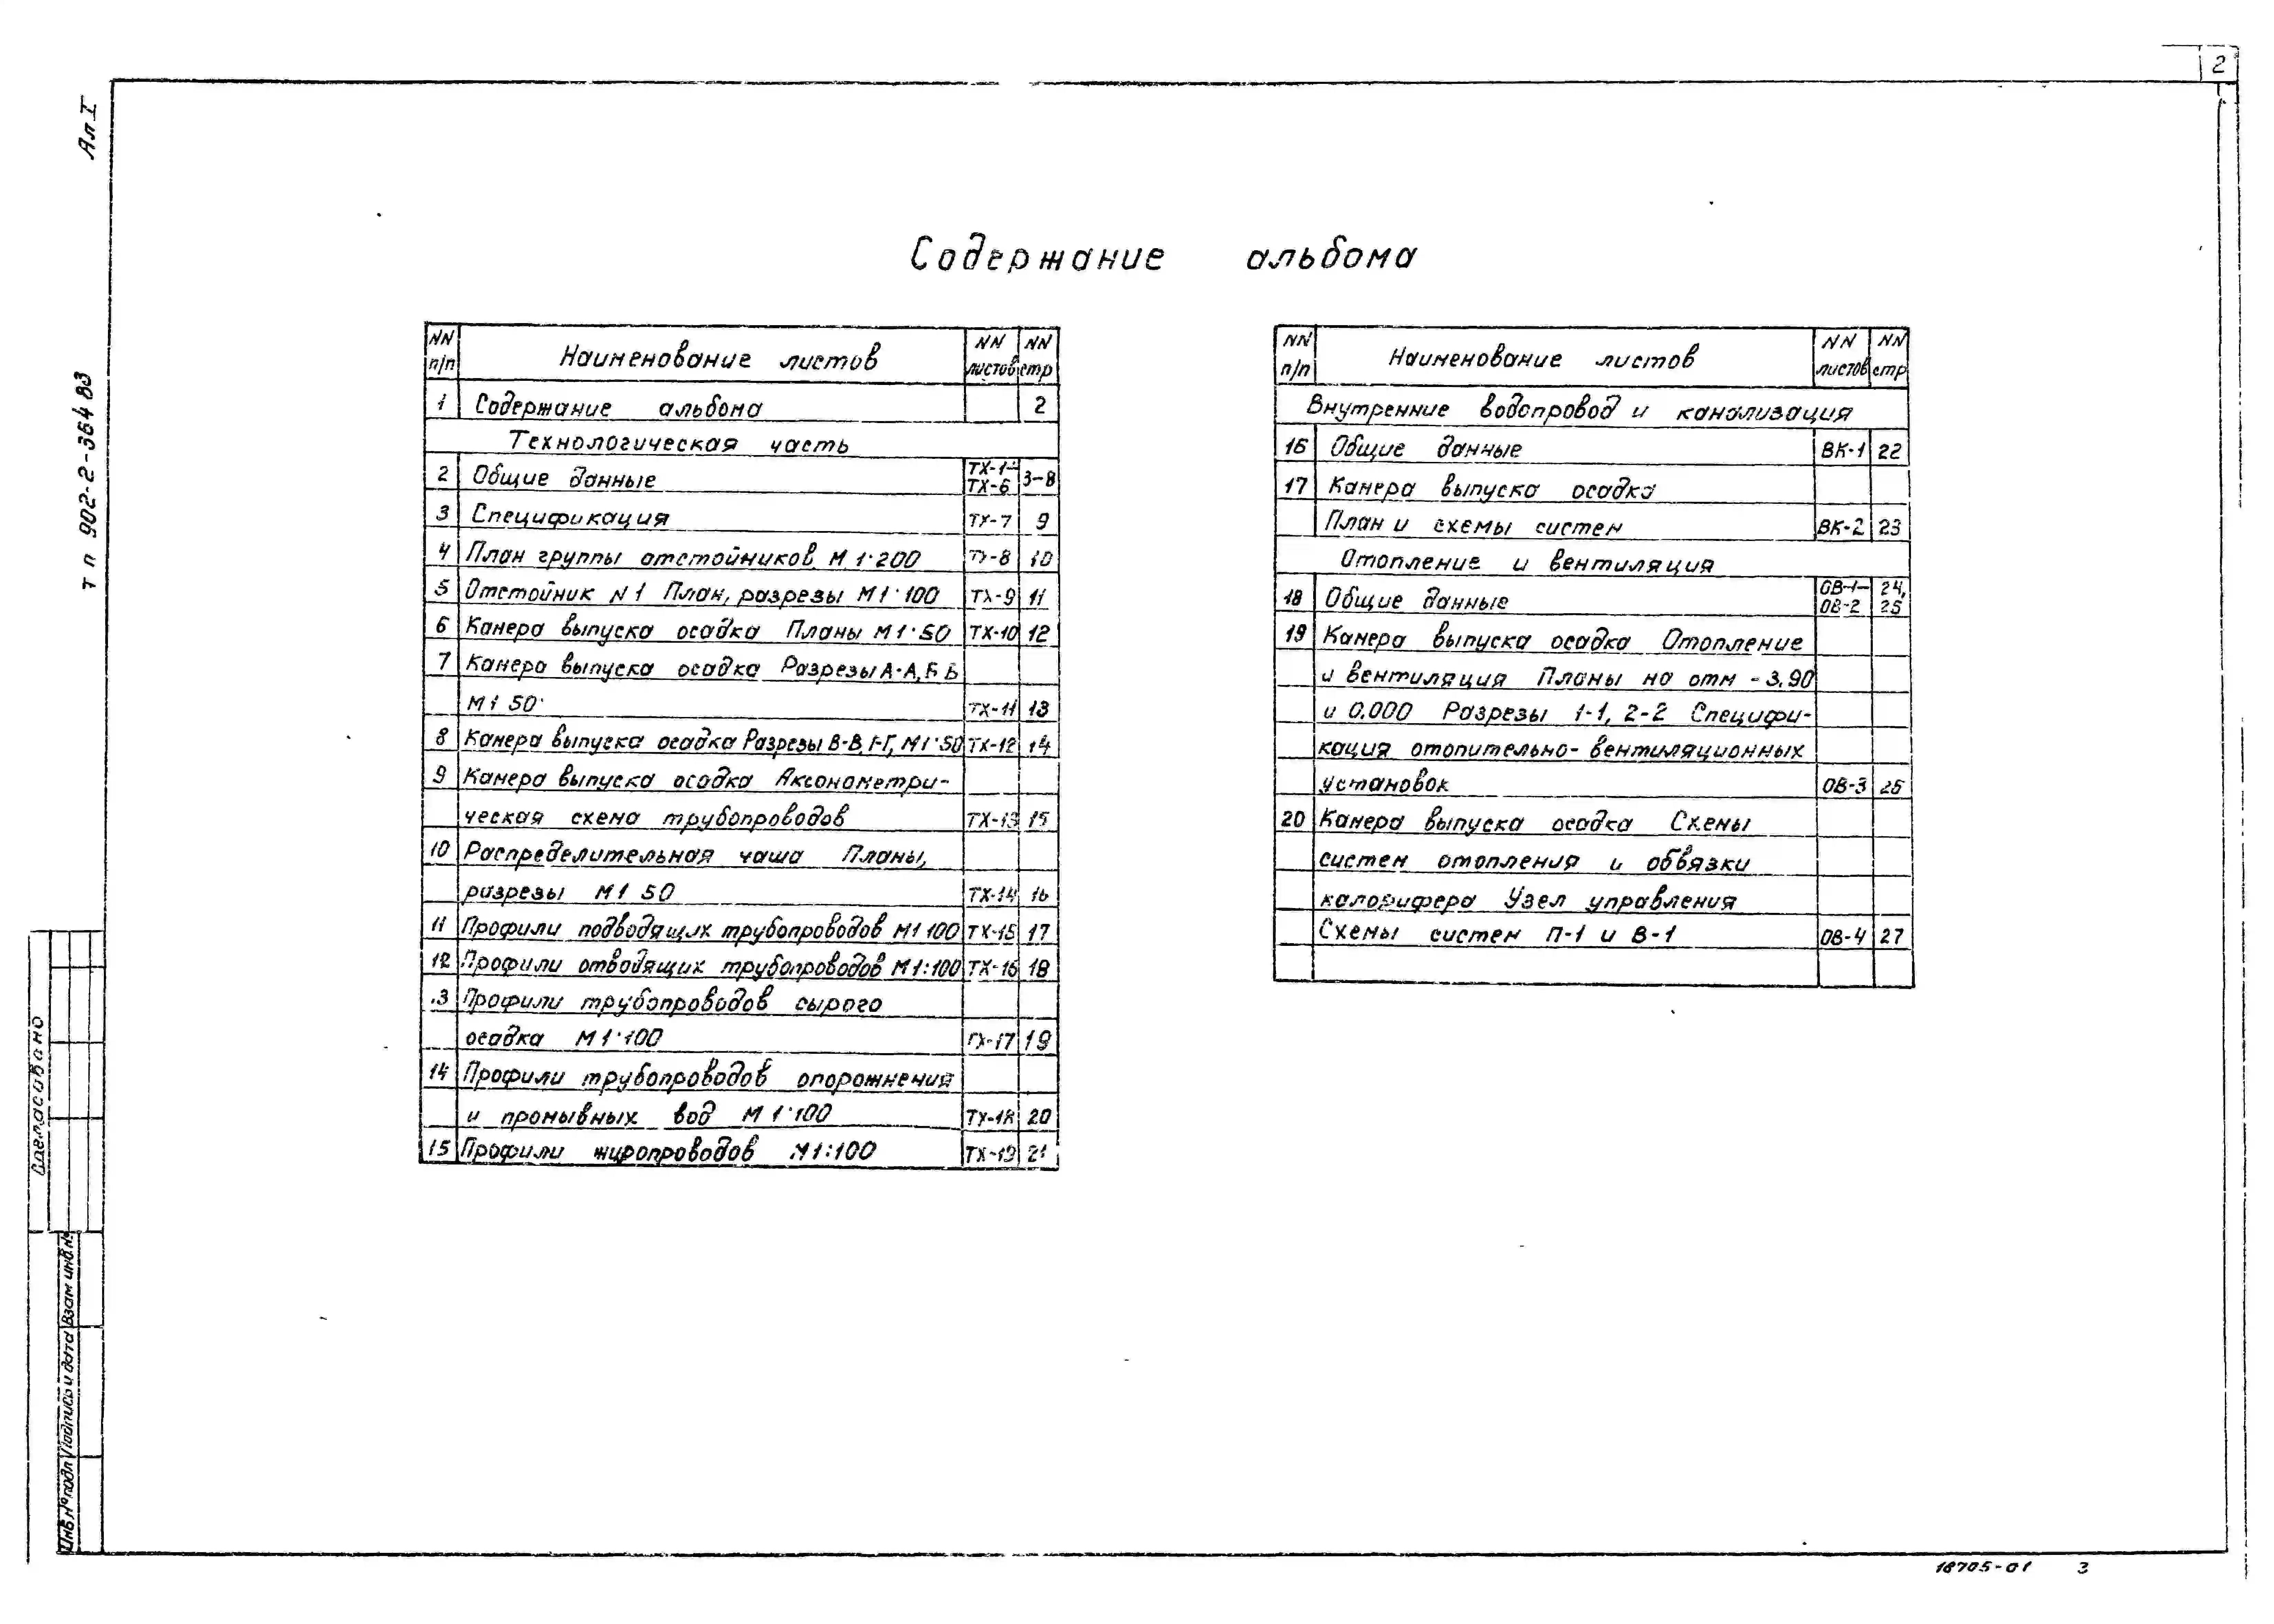 2
Ал I
т п 902-2-364 83
Содержание альбома
NN п/п Наименование листов NN листов NN стр
1 Содержание альбома 2
Технологическая часть
2 Общие данные ТХ-1- ТХ-6 3-8
3 Спецификация ТХ-7 9
4 План группы отстойников М 1:200 ТХ-8 10
5 Отстойник N 1 План, разрезы М 1:100 ТХ-9 11
6 Камера выпуска осадка Планы М 1:50 ТХ-10 12
7 Камера выпуска осадка Разрезы А-А, Б Б
М 1 50 ТХ-11 13
8 Камера выпуска осадка Разрезы В-В, Г-Г, М 1:50 ТХ-12 14
9 Камера выпуска осадка Аксонометри-
ческая схема трубопроводов ТХ-13 15
10 Распределительная чаша Планы,
разрезы М 1 50 ТХ-14 16
11 Профили подводящих трубопроводов М 1 100 ТХ-15 17
12 Профили отводящих трубопроводов М 1:100 ТХ-16 18
13 Профили трубопроводов сырого
осадка М 1:100 ТХ-17 19
14 Профили трубопроводов опорожнения
и промывных вод М 1:100 ТХ-18 20
15 Профили жиропроводов М 1:100 ТХ-19 21
NN п/п Наименование листов NN листов NN стр
Внутренние водопровод и канализация
16 Общие данные ВК-1 22
17 Камера выпуска осадка
План и схемы систем ВК-2 23
Отопление и вентиляция
18 Общие данные ОВ-1- ОВ-2 24, 25
19 Камера выпуска осадка Отопление
и вентиляция Планы на отм -3.90
и 0.000 Разрезы 1-1, 2-2 Специфи-
кация отопительно-вентиляционных
установок ОВ-3 26
20 Камера выпуска осадка Схемы
систем отопления и обвязки
калорифера Узел управления
Схемы систем П-1 и В-1 ОВ-4 27
Согласовано
Инв.№ подл Подпись и дата Взам инв.№
18705-01 3